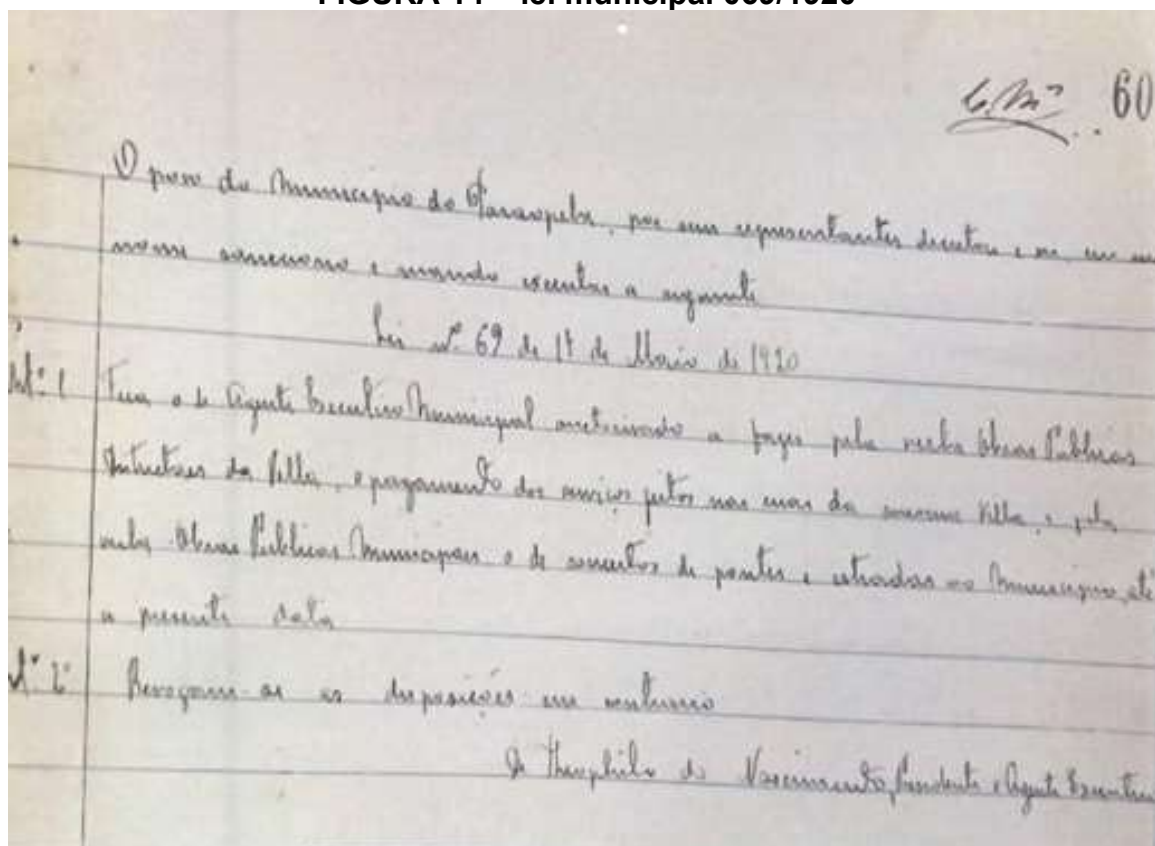 FIGURA 14 – lei municipal 069/1920
60
O povo do Municipio do Paraopeba, por seus representantes decretou e eu em seu
nome sancciono e mando executar a seguinte
Lei nº 69 de 14 de Maio de 1920
Art. 1 Fica o Agente Executivo Municipal auctorisado a fazer pela verba Obras Publicas
da Villa, o pagamento dos serviços feitos nas ruas da mesma Villa, e pela
verba Obras Publicas Municipaes o de concertos de pontes e estradas no Municipio, até
a presente data
Art. 2º Revogam-se as disposições em contrario
Dr Theophilo do Nascimento, Presidente e Agente Executivo